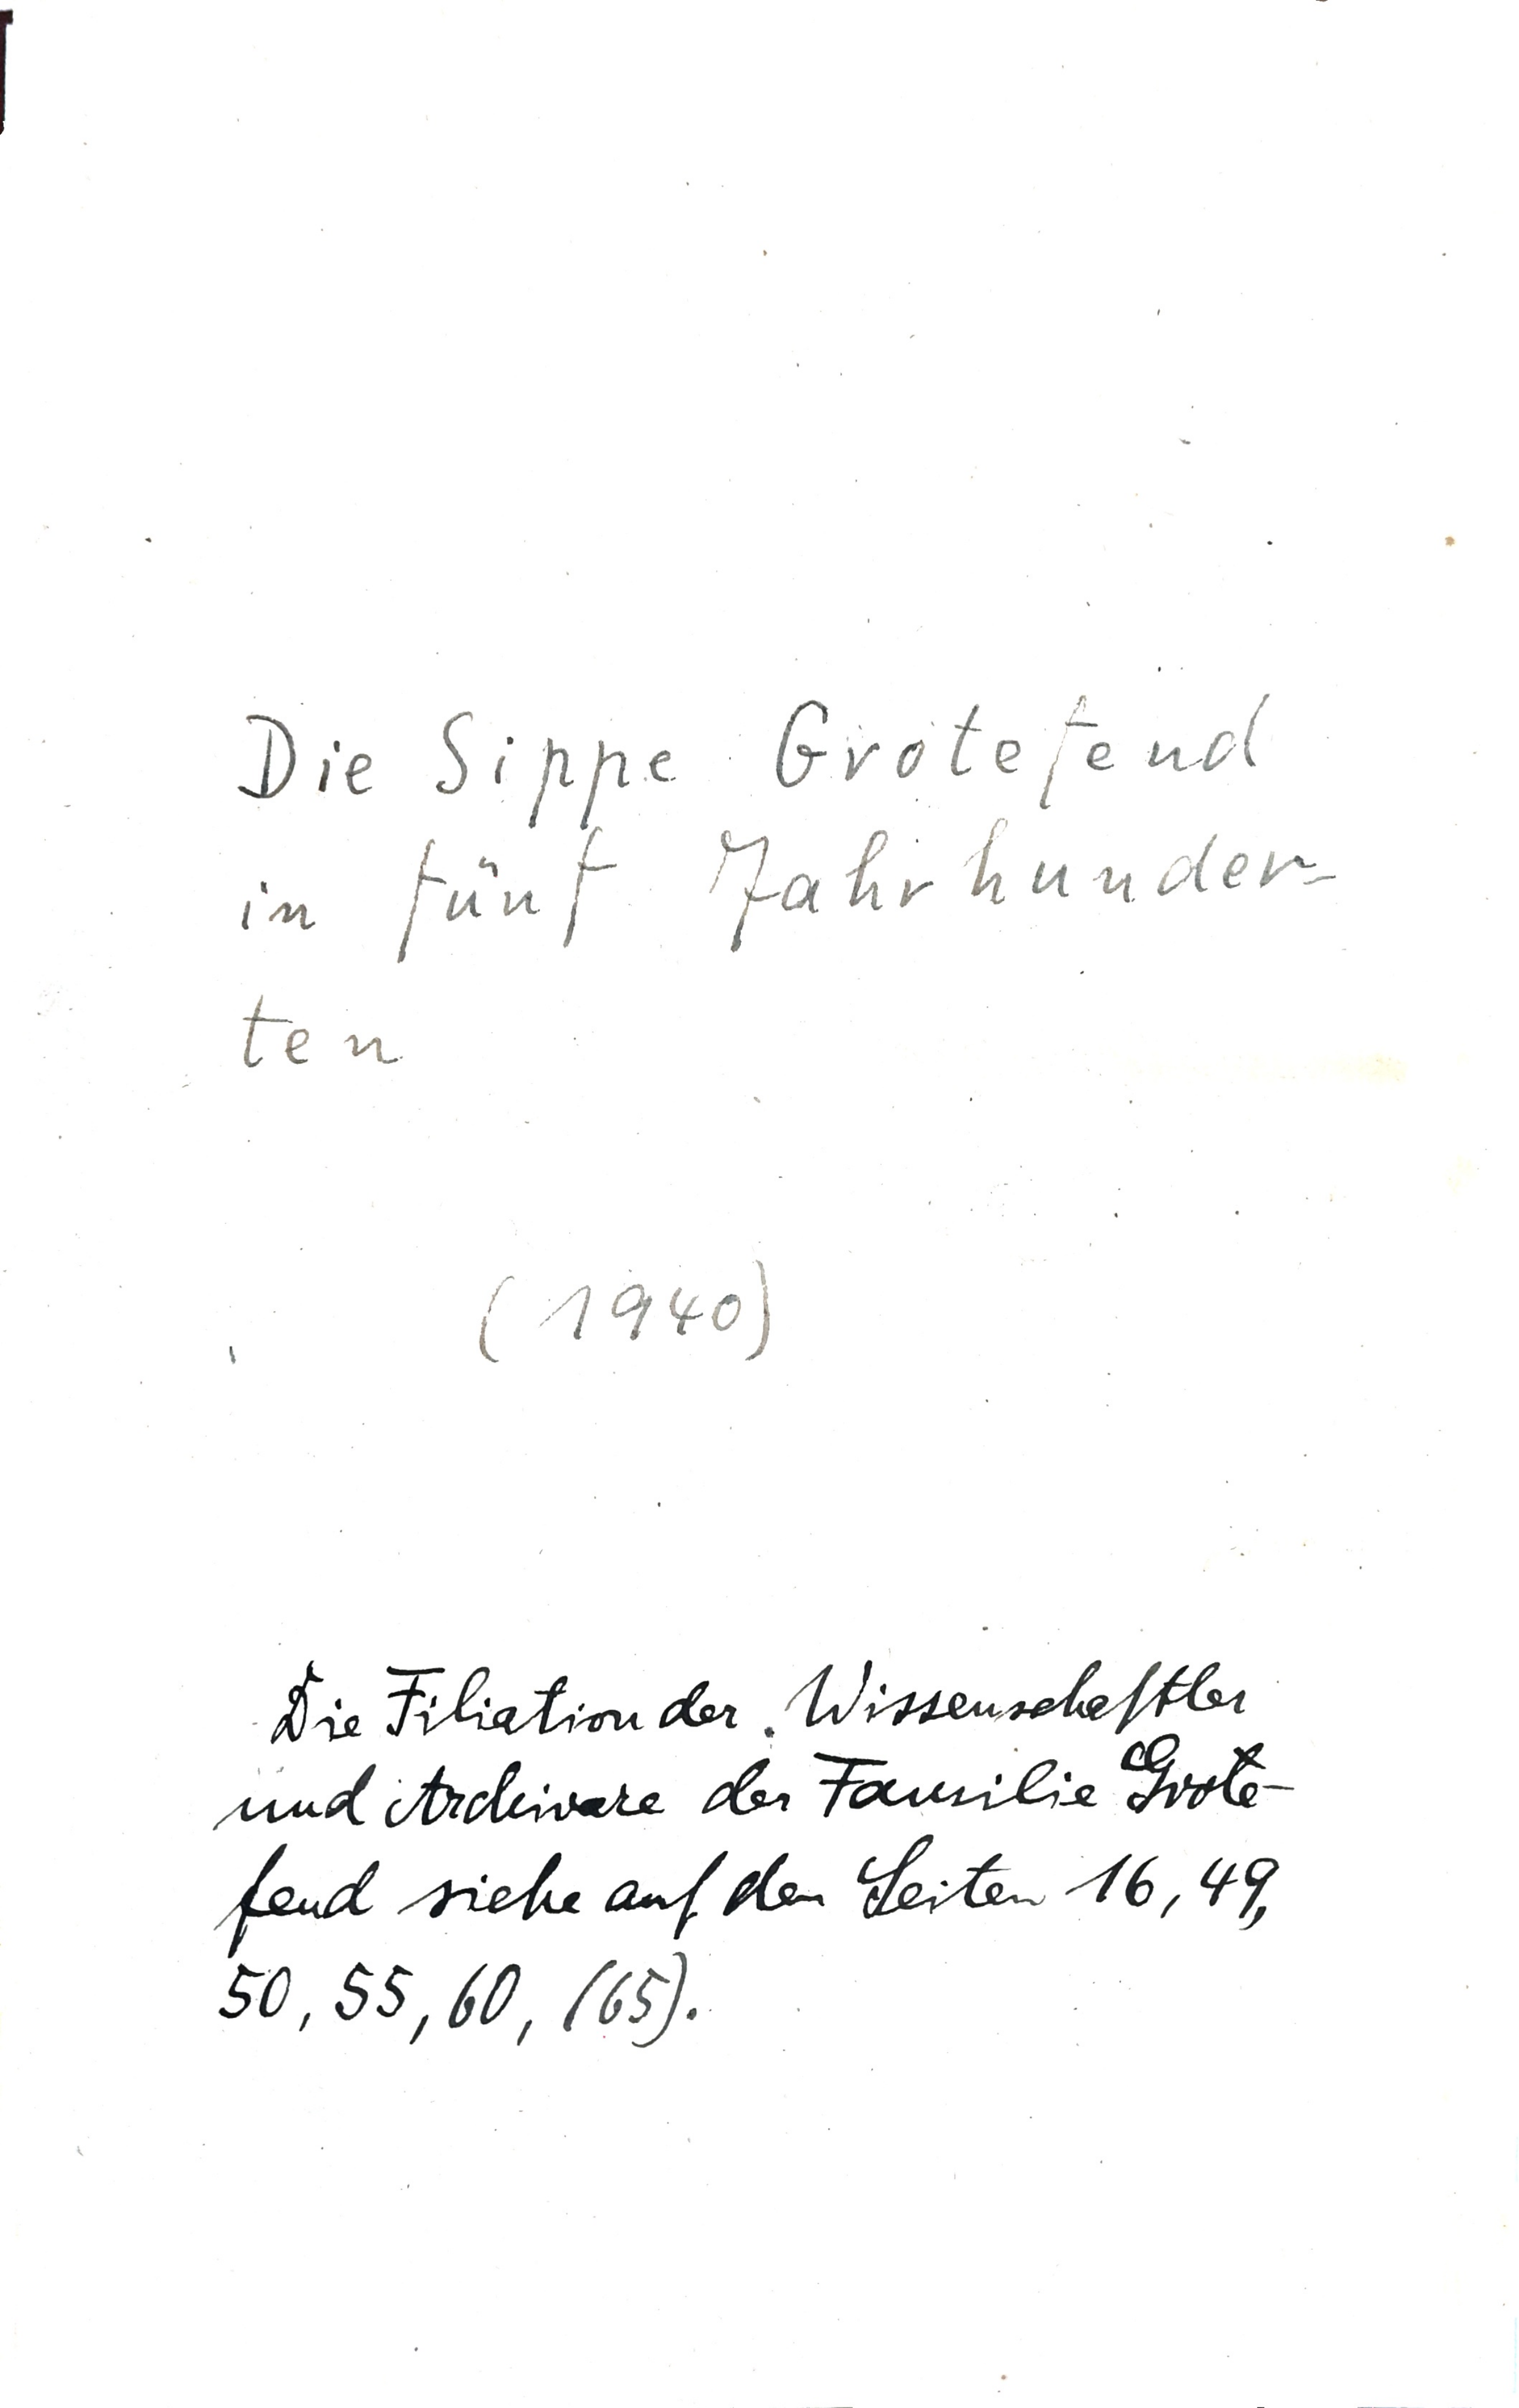 Die Sippe Grotefend
in fünf Jahrhunder=
ten
(1940)
Die Filiation der Wissenschaftler
und Archivare der Familie Grote-
fend siehe auf den Seiten 16, 49,
50, 55, 60, (65).